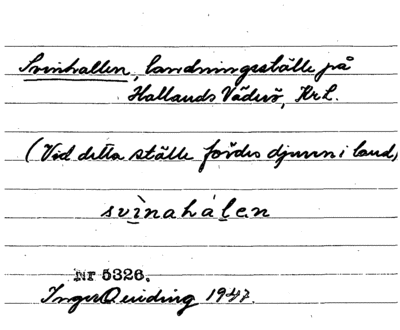 Svinhallen, landningsställe på
Hallands Väderö, Kr L.
(Vid detta ställe fördes djuren i land)
svìnahálen
Nr 5326.
Inger Quiding 1947.